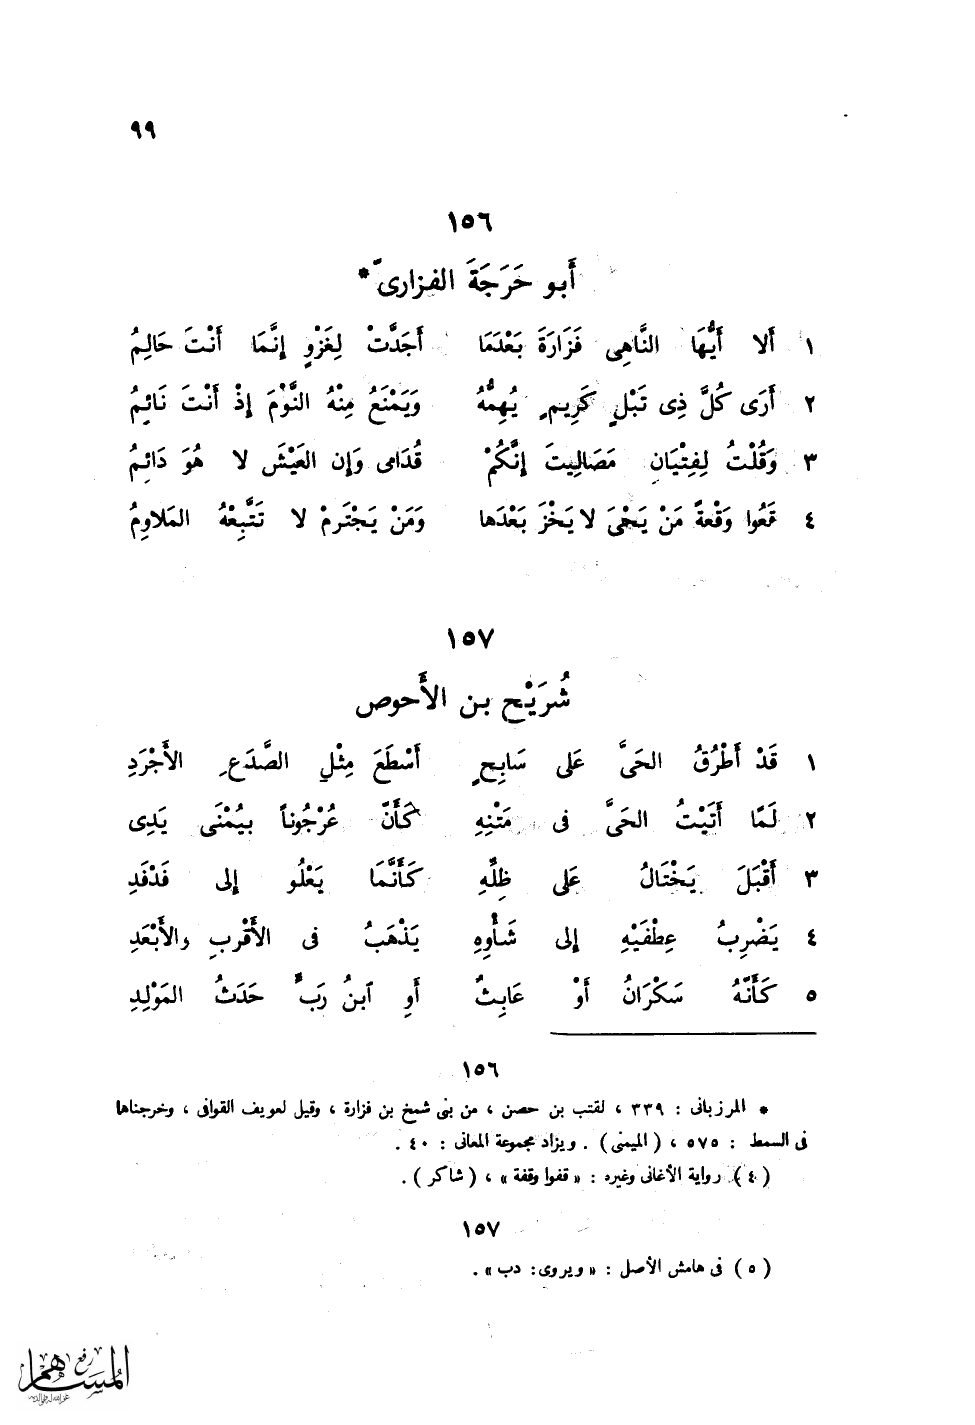 ٩٩
١٥٦
أَبو حَرَجَةَ الفزارىّ*
١ أَلا أَيُّهَا النَّاهِى فَزَارَةَ بَعْدَمَا أَجَدَّتْ لِغَزْوٍ إِنَّمَا أَنْتَ حَالِمُ
٢ أَرَى كُلَّ ذِى تَبْلٍ كَرِيمٍ يُهِمُّهُ وَيَمْنَعُ مِنْهُ النَّوْمَ إِذْ أَنْتَ نَائِمُ
٣ وَقُلْتُ لِفِتْيَانٍ مَصَالِيتَ إِنَّكُمْ قُدَامى وَإِن العَيْشَ لا هُوَ دَائِمُ
٤ قَعُوا وَقْعةً مَنْ يَحْىَ لا يَخْزَ بَعْدَها وَمَنْ يَجْتَرِمْ لا تَتَّبِعْهُ المَلاوِمُ
١٥٧
شُرَيْح بن الأَحوص
١ قَدْ أَطْرُقُ الحَىَّ عَلَى سَابِحٍ أَسْطَعَ مِثْلِ الصَّدَعِ الأَجْرَدِ
٢ لَمَّا أَتَيْتُ الحَىَّ فى مَتْنِهِ كَأَنَّ عُرْجُوناً بِيُمْنَى يَدِى
٣ أَقْبَلَ يَخْتَالُ عَلَى ظِلِّهِ كَأَنَّمَا يَعْلُو إِلى فَدْفَدِ
٤ يَضْرِبُ عِطْفَيْهِ إِلى شَأْوِهِ يَذْهَبُ فى الأَقْربِ والأَبْعَدِ
٥ كَأَنَّهُ سَكْرَانُ أَوْ عَابِثٌ أَوِ ٱبنُ رَبٍّ حَدَثُ المَوْلِدِ
١٥٦
* المرزبانى : ٣٣٩ ، لقتب بن حصن ، من بنى شمخ بن فزارة ، وقيل لعويف القوافى ، وخرجناها
فى السمط : ٥٧٥ ، ( الميمنى ) . ويزاد مجموعة المعانى : ٤٠ .
( ٤ ) رواية الأغانى وغيره : « قفوا وقفة » ، ( شاكر ) .
١٥٧
( ٥ ) فى هامش الأصل : « ويروى : دب » .
رفع
المساهم